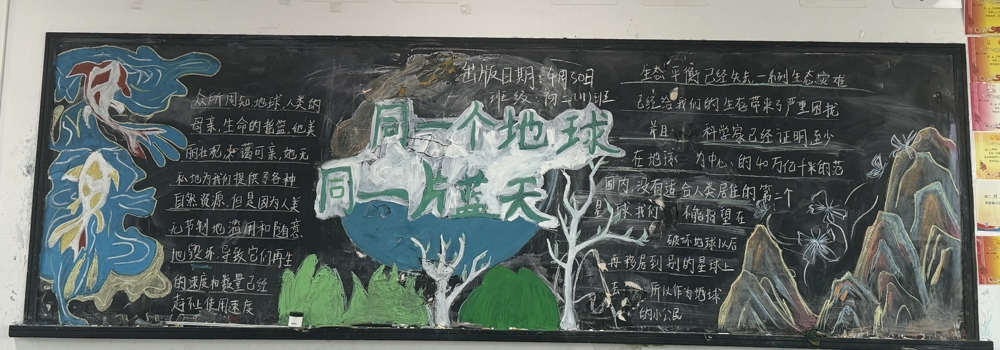 众所周知,地球,人类的
母亲,生命的摇篮,她美
丽壮观,和蔼可亲,地无
私地为我们提供各种
自然资源,但是因为人类
无节制地滥用和随意
地毁坏,导致它们再生
的速度和数量已经
赶不上使用速度
出版日期:4月30日
班级:初二(11)班
同一个地球
同一片蓝天
生态平衡已经失去,一系列生态灾难
已经给我们的生态带来了严重困扰
并且: 科学家已经证明至少
在地球 为中心,的40万亿千米的范
围内,没有适合人类居住的第二个
星球,我们 不能指望在
破坏地球以后
再移居到别的星球上
去 所以作为地球
的小公民